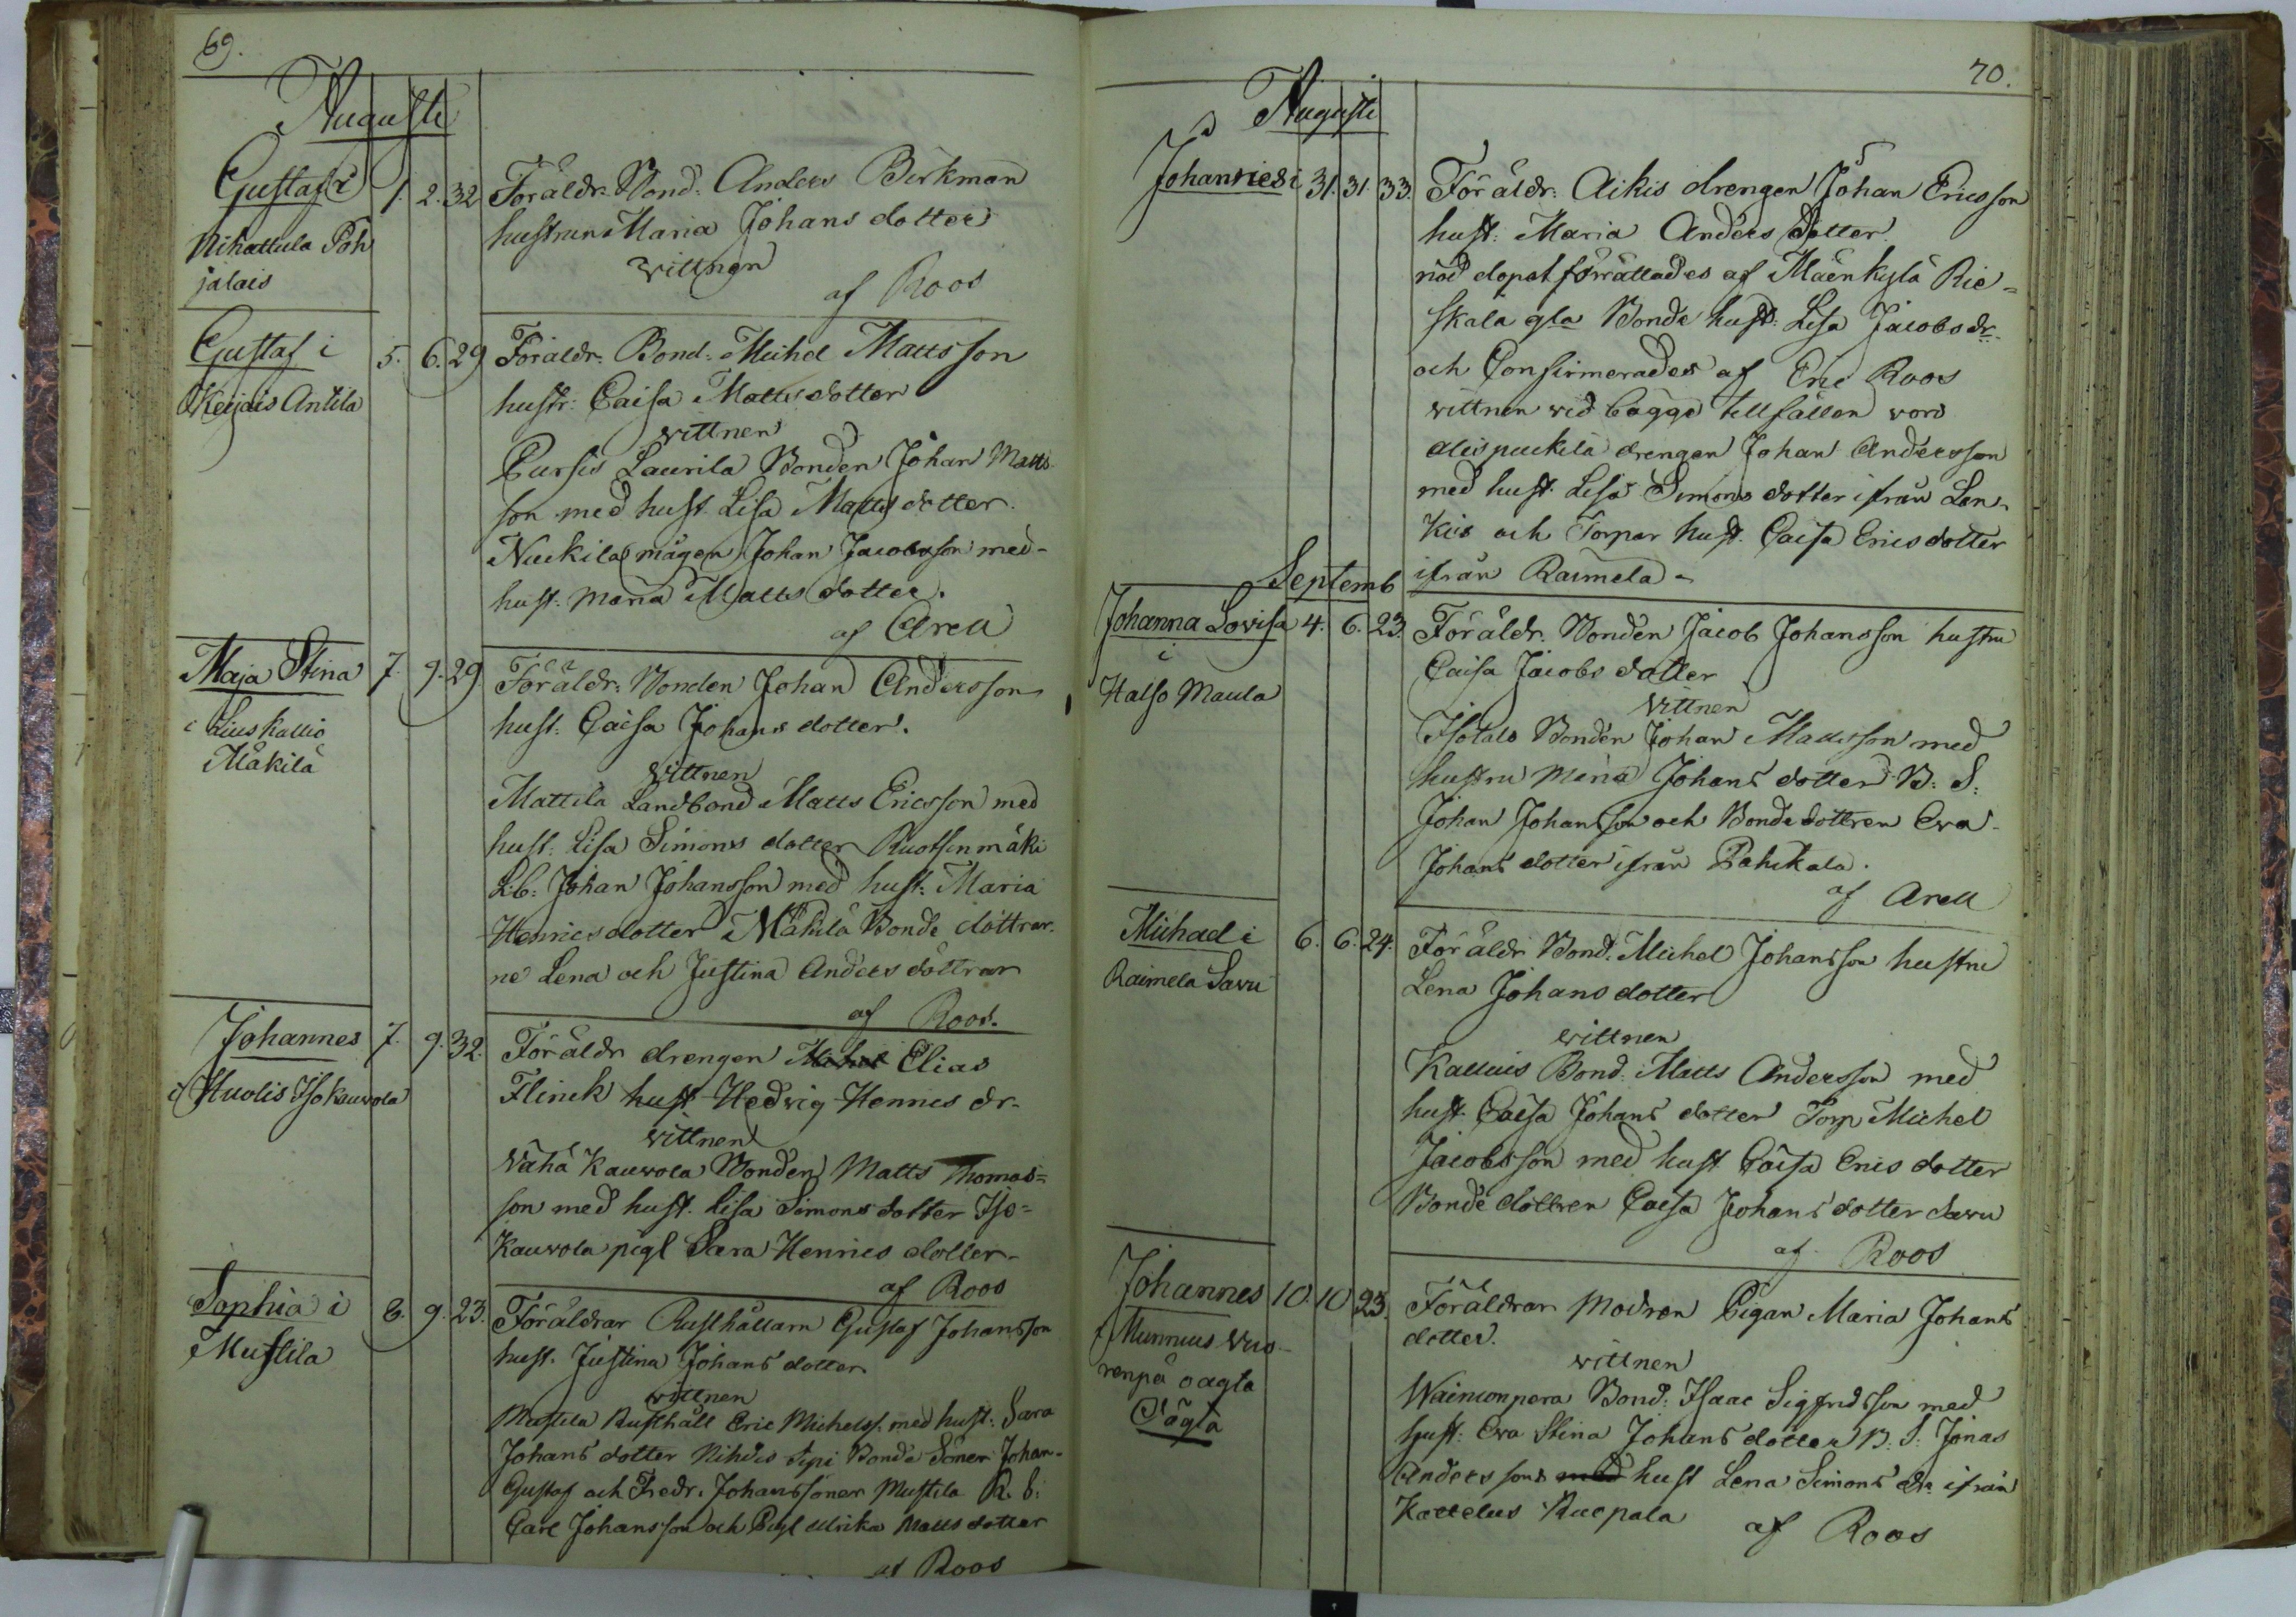 69.
Augusti
Gustaf i
Nihattula Poh
jalais
1. 2. 32
Föräldr. Bond: Anders Birkman
hustrun Maria Johans dotter
wittnen
af Roos
Gustaf i
Keijais Antila
5. 6. 29
Föräldr. Bond: Michel Mattsson
hustr: Caisa Matts dotter
wittnen
Cursis Laurila Bonden Johan Matts
son med hust. Lisa Matts dotter.
Nuckila mågen Johan Jacobsson med
hust: Maria Matts dotter.
af Arell
Maja Stina
i Liuskallio
Mäkilä
7. 9. 29
Föräldr: Bonden Johan Andersson
hust: Caisa Johans dotter.
wittnen
Mattila Landbond Matts Ericsson med
hust: Lisa Simons dotter Ruotsinmäki
L.b: Johan Johansson med hust: Maria
Henricsdotter Mäkilä Bonde döttrar
ne Lena och Justina Anders döttrar
af Roos.
Johannes
i Huolis Iso Kauwola
7. 9. 32.
Föräldr drengen Michel Elias
Flinck hust Hedvig Henrics dr.
wittnen
Vähä Kauwola Bonden Matts Thomas=
son med hust. Lisa Simons dotter Iso=
Kauwola pigl Sara Henrics dotter
af Roos
Sophia i
Mustila
8. 9. 23.
Föräldrar Rusthållarn Gustaf Johansson
hust. Justina Johans dotter
wittnen
Mustila Rusthåll Eric Michelss. med hust: Sara
Johans dotter Nihdis Sipi Bonde Söner Johan
Gustaf och Fredr. Johanssöner Mustila R. S:
Carl Johansson och Pigl Ulrika Matts dotter
af Roos
70.
Augusti
Johannes i
31. 31. 33.
Föräldr: Aikis drengen Johan Ericsson
hust: Maria Anders dotter.
nöd dopet förrättades af Mäenkylä Rie=
skala gla Bonde hust: Lisa Jacobs dr
och Confirmerades af Eric Roos
wittnen wid bägge tillfällen woro
Alispuckila drengen Johan Andersson
med hust. Lisa Simons dotter ifrån Len
kis och Torpar hust. Caisa Erics dotter
ifrån Raimela
Septemb
Johanna Lovisa
i
Halso Maula
4. 6. 23.
Föräldr. Bonden Jacob Johansson hustru
Caisa Jacobs dotter
Vittnen
Isotalo Bonden Johan Mattsson med
hustru Maria Johans dotter B: S:
Johan Johansson och Bonde dottren Eva
Johans dotter ifrån Pahikala.
af Arell
Michael i
Raimela Savu
6. 6. 24.
Föräldr Bond. Michel Johansson hustru
Lena Johans dotter
wittnen
Kallais Bond. Matts Andersson med
hust. Caisa Johans dotter Torp Michel
Jacobsson med hust Caisa Erics dotter
Bonde dottren Caisa Johans dotter Savu
af Roos
Johannes
i Munnuis Vuo
renpä oägta
Oägta
10 10 23.
Föräldrar Modren Pigan Maria Johans
dotter.
wittnen
Wainionpera Bond: Isaac Sigfridsson med
hust: Eva Stina Johans dotter B: S: Jonas
Anderssons med hust Lena Simons dr ifrån
Kattelus Ruopala
af Roos